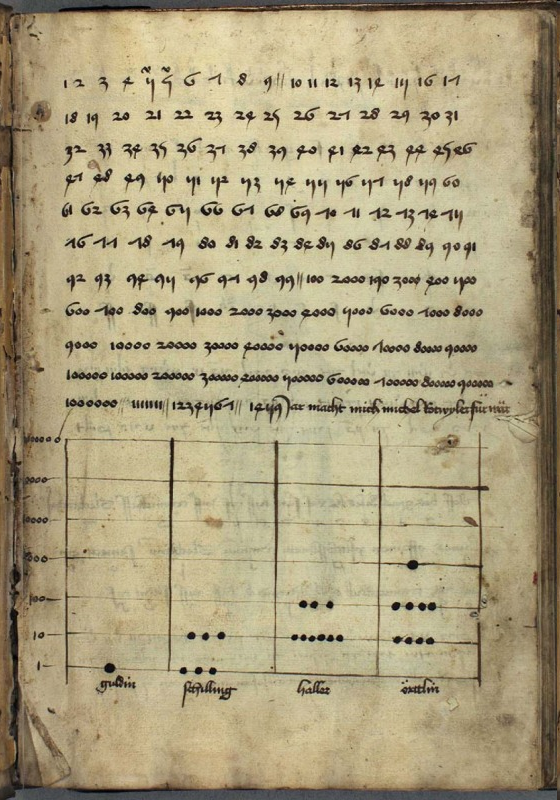 1 2 3 4 5 5 6 7 8 9 // 10 11 12 13 14 15 16 17
18 19 20 21 22 23 24 25 26 27 28 29 30 31
32 33 34 35 36 37 38 39 40 41 42 43 44 45 46
47 48 49 50 51 52 53 54 55 56 57 58 59 60
61 62 63 64 65 66 67 68 69 70 71 72 73 74 75
76 77 78 79 80 81 82 83 84 85 86 87 88 89 90 91
92 93 94 95 96 97 98 99 // 100 2000 300 400 500
600 700 800 900 1000 2000 3000 4000 5000 6000 7000 8000
9000 10000 20000 30000 40000 50000 60000 70000 80000 90000
100000 100000 200000 300000 400000 500000 600000 700000 800000 900000
1000000 // 111111 // 1234567 // 1459 Jar macht mich michel für
100000
1000
100
10
1
guldin schilling haller örttlin